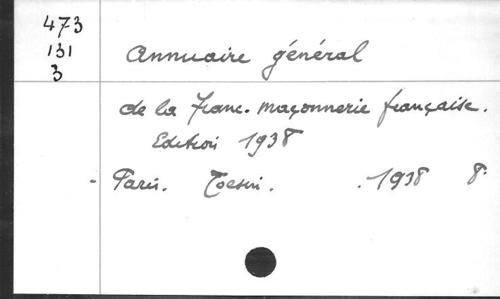 473
131
3
Annuaire général
de la Franc-maçonnerie française.
Edition 1938
- Paris. Tocsin. . 1938 8°